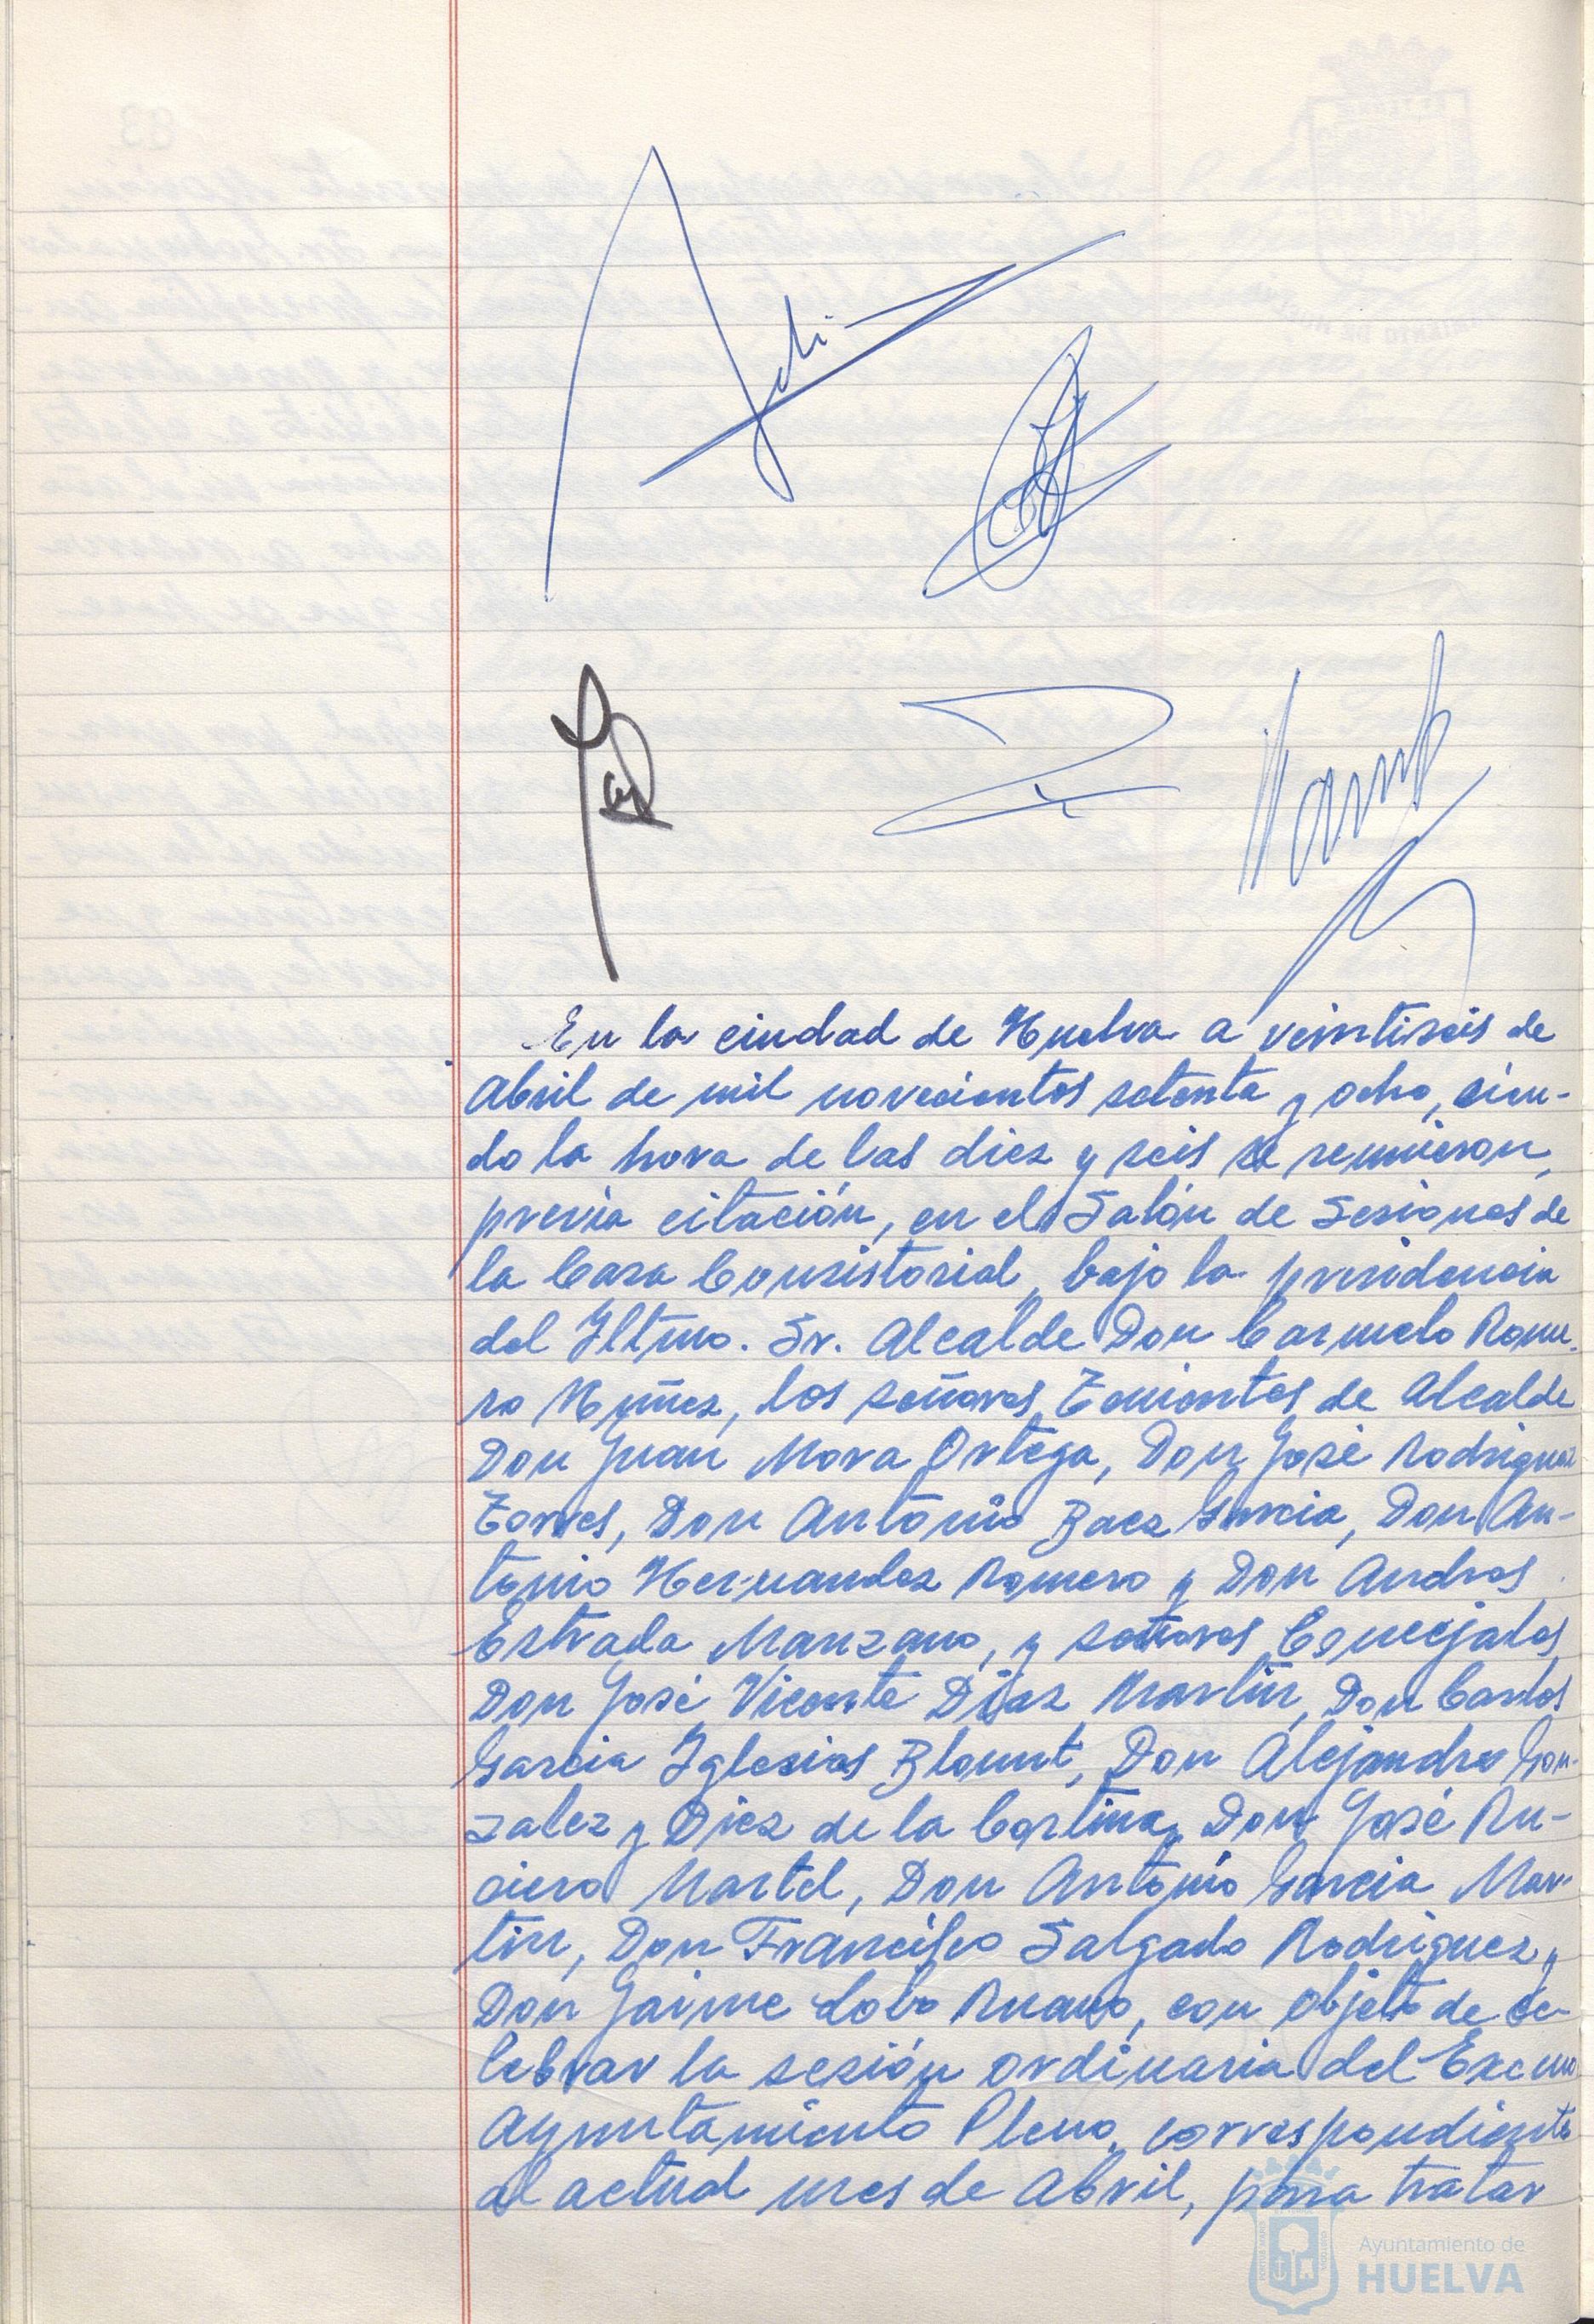 En la ciudad de Huelva a veintiseis de
Abril de mil novecientos setenta y ocho, sien-
do la hora de las diez y seis se reunieron,
previa citación, en el Salón de Sesiones de
la Casa Consistorial, bajo la presidencia
del Iltmo. Sr. Alcalde Don Carmelo Rome-
ro Núñez, los señores Tenientes de Alcalde
Don Juan Mora Ortega, Don José Rodriguez
Torres, Don Antonio Baez Garcia, Don An-
tonio Hernandez Romero y Don Andres
Estrada Manzano, y señores Concejales
Don José Vicente Díaz Martin, Don Carlos
Garcia Iglesias Blount, Don Alejandro Gon-
zalez y Diez de la Cortina, Don José Ru-
ciero Martel, Don Antonio Garcia Mar-
tin, Don Francisco Salgado Rodriguez y
Don Jaime Lobo Ruano, con objeto de ce-
lebrar la sesión ordinaria del Excmo
Ayuntamiento Pleno, correspondiente
al actual mes de Abril, para tratar
Ayuntamiento de
HUELVA